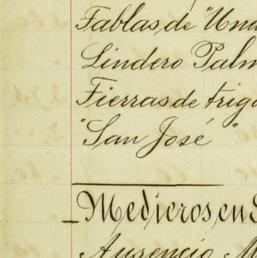 Tablas de "Una
Lindero Palm
Tierras de trigo
"San José"
Medieros en S
Ausencio M